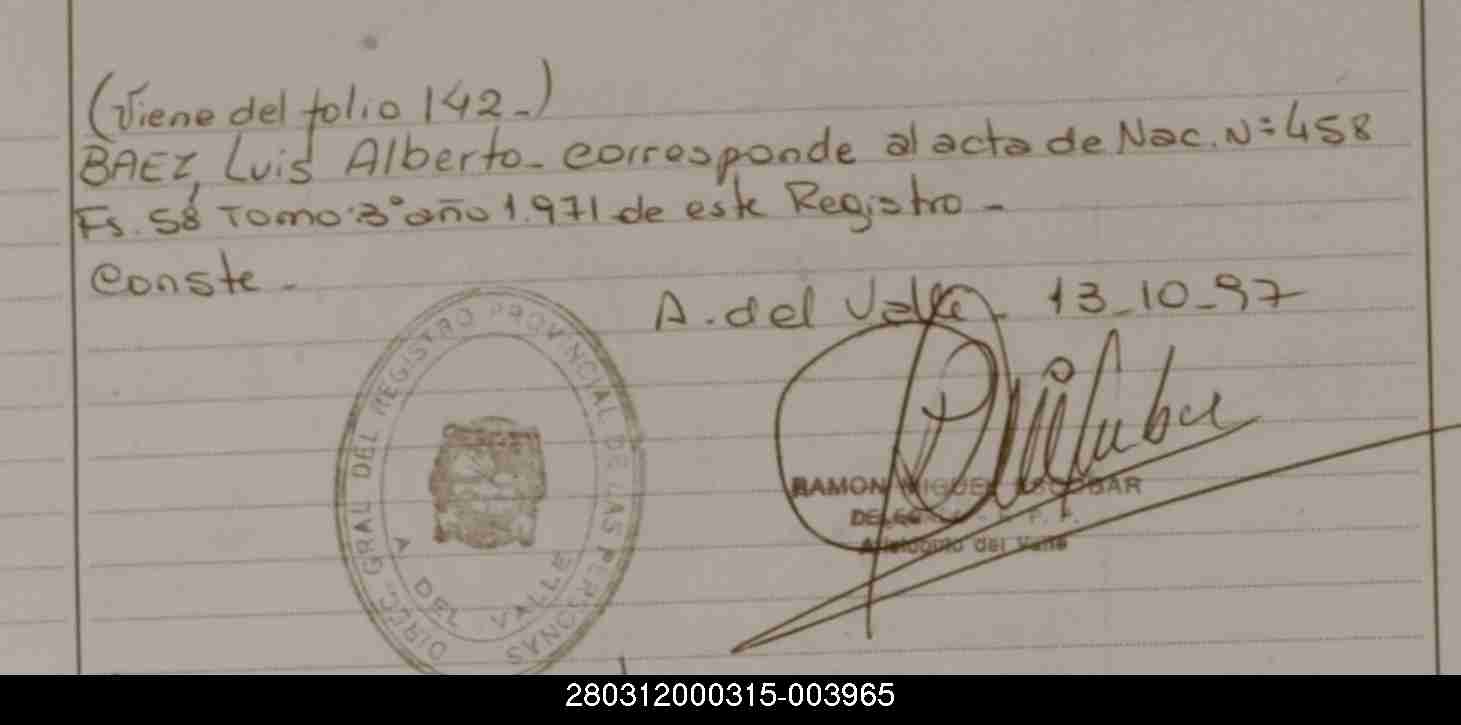 (Viene del folio 142-)
BAEZ, Luis Alberto- corresponde al acta de Nac. N=458
Fs. 58 Tomo:3° año 1.971 de este Registro-
Conste-
A. del Valle- 13-10-97
DIREC. GRAL DEL REGISTRO PROVINCIAL DE LAS PERSONAS
A DEL VALLE
RAMON MIGUEL ESCOBAR
del Valle
280312000315-003965